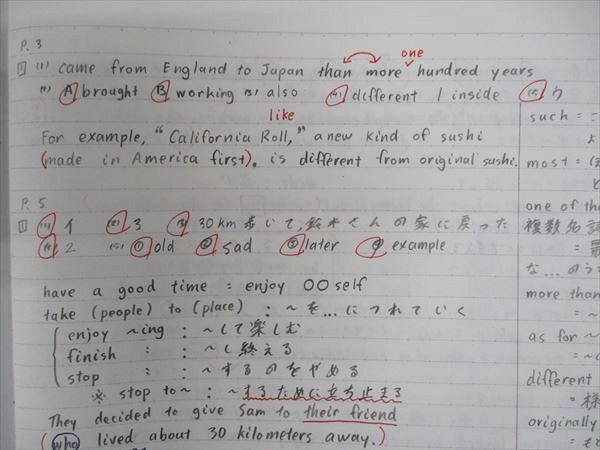 P. 3
one
1 (1) came from England to Japan than more hundred years
(2) A brought B working (3) also (4) different / inside (5) ウ
like
For example, "California Roll," a new kind of sushi
(made in America first). is different from original sushi.
P. 5
1 (1) イ (2) 3 (3) 30km歩いて,鈴木さんの家に戻った
(4) 2 (5) ① old ② sad ③ later ④ example
have a good time = enjoy ○○self
take (people) to (place) : ~を...につれていく
enjoy ~ing : ~して楽しむ
finish : : ~し終える
stop : : ~するのをやめる
※ stop to~ : ~するために立ち止まる
They decided to give Sam to their friend
(who lived about 30 kilometers away.)
such =
most =
one of the
複数名詞
=
な...のう
more than
= ~
as for ~
= ~
different
= 様
originally